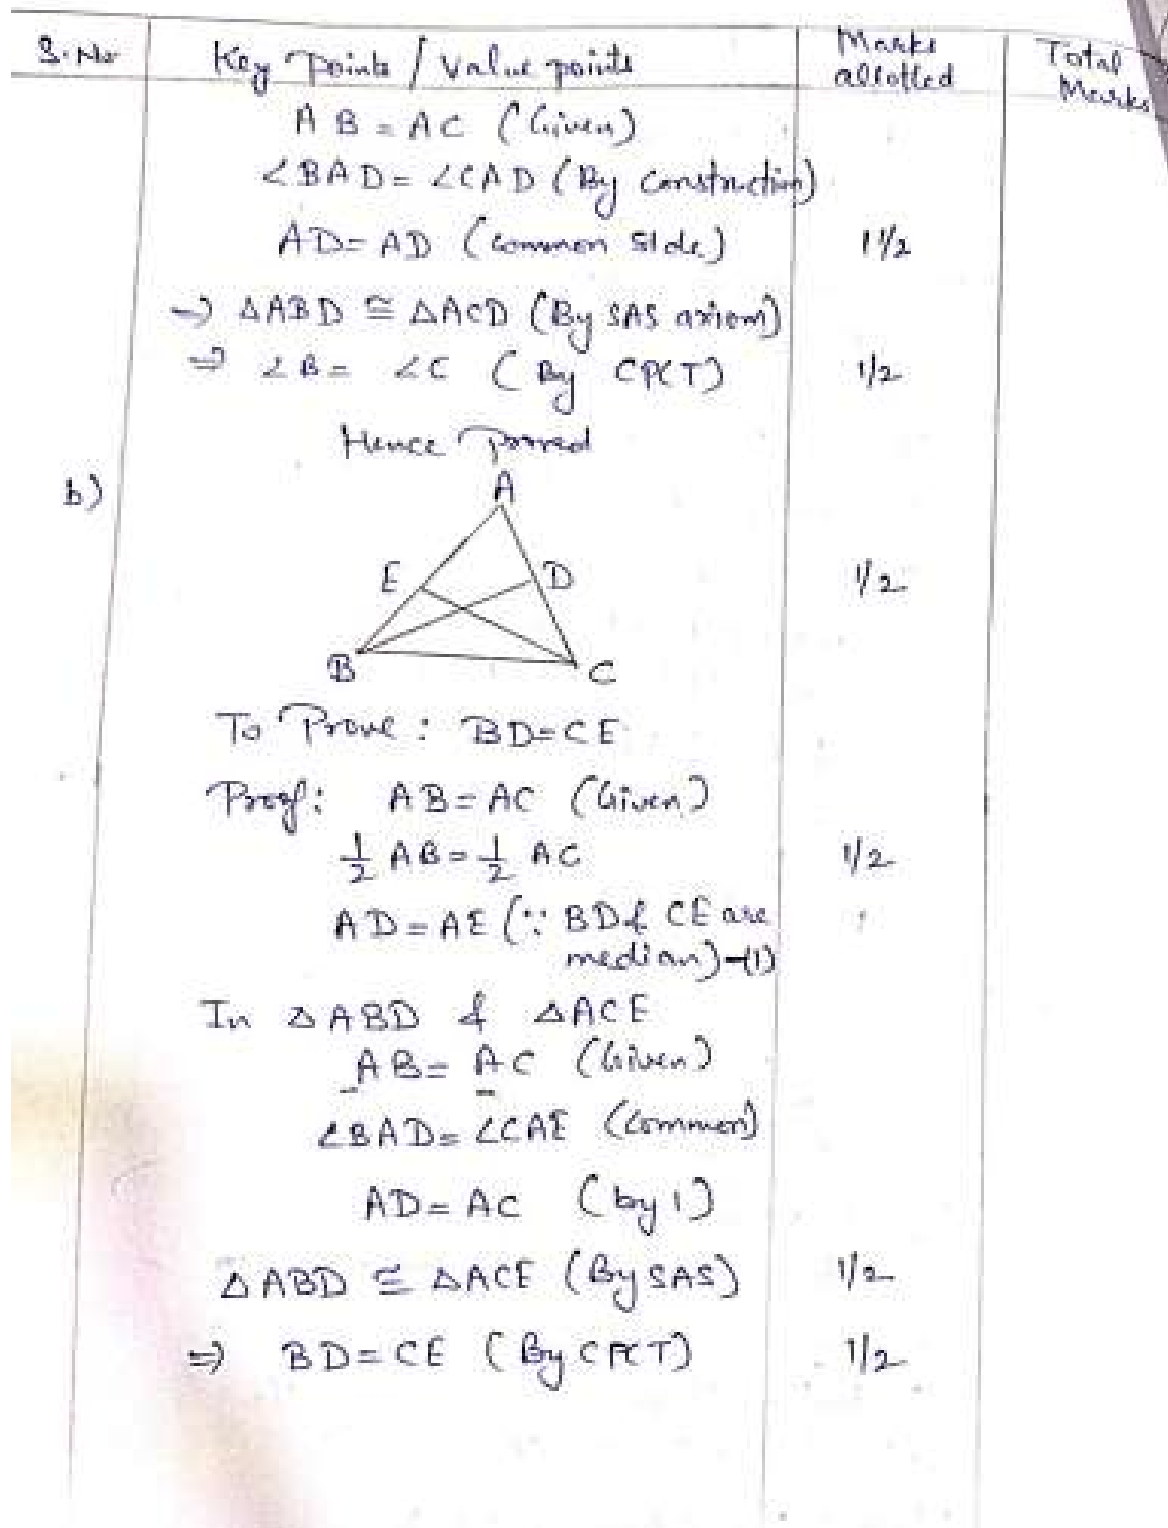 S.No Key Points / Value points Marks allotted Total Marks
AB = AC (Given)
∠BAD = ∠CAD (By Construction)
AD = AD (Common Side) 1 1/2
⇒ ΔABD ≅ ΔACD (By SAS axiom)
⇒ ∠B = ∠C (By CPCT) 1/2
Hence Proved
b)
A
E D 1/2
B C
To Prove : BD = CE
Proof : AB = AC (Given)
1/2 AB = 1/2 AC 1/2
AD = AE (∵ BD & CE are
median) -(1)
In ΔABD & ΔACE
AB = AC (Given)
∠BAD = ∠CAE (Common)
AD = AC (by 1)
ΔABD ≅ ΔACE (By SAS) 1/2
⇒ BD = CE (By CPCT) 1/2